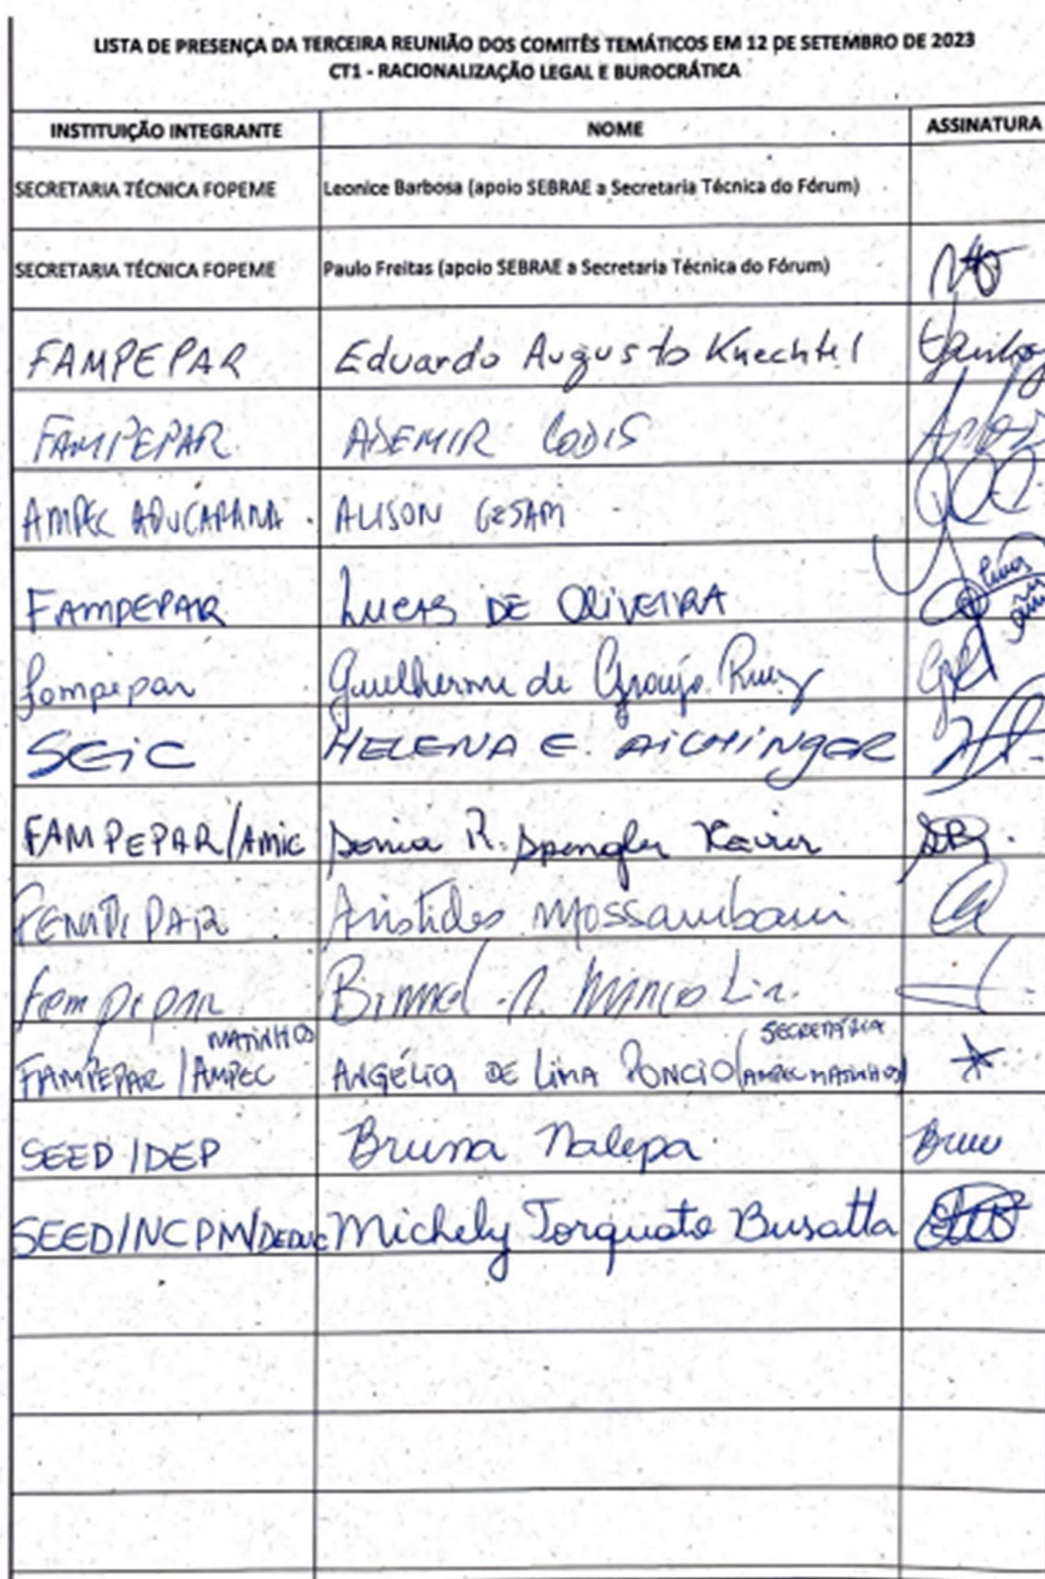 LISTA DE PRESENÇA DA TERCEIRA REUNIÃO DOS COMITÊS TEMÁTICOS EM 12 DE SETEMBRO DE 2023
CT1 - RACIONALIZAÇÃO LEGAL E BUROCRÁTICA
INSTITUIÇÃO INTEGRANTE NOME ASSINATURA
SECRETARIA TÉCNICA FOPEME Leonice Barbosa (apoio SEBRAE a Secretaria Técnica do Fórum)
SECRETARIA TÉCNICA FOPEME Paulo Freitas (apoio SEBRAE a Secretaria Técnica do Fórum)
FAMPEPAR Eduardo Augusto Knechtel
FAMPEPAR ADEMIR
AMPEC APUCARANA ALISON
FAMPEPAR LUCAS DE OLIVEIRA
fampepar Guilherme de Araújo Ruiz
SEIC HELENA E. AICHINGER
FAMPEPAR/AMIC Sonia R. Spengler Xavier
Aristides Mossambani
MATINHOS SECRETÁRIA
FAMPEPAR/AMPEC ANGÉLIA DE LIMA PONCIO (AMPEC MATINHOS)
SEED/DEP Bruna Nalepa
SEED/NCPM/DEDUC Michely Torquato Busatta